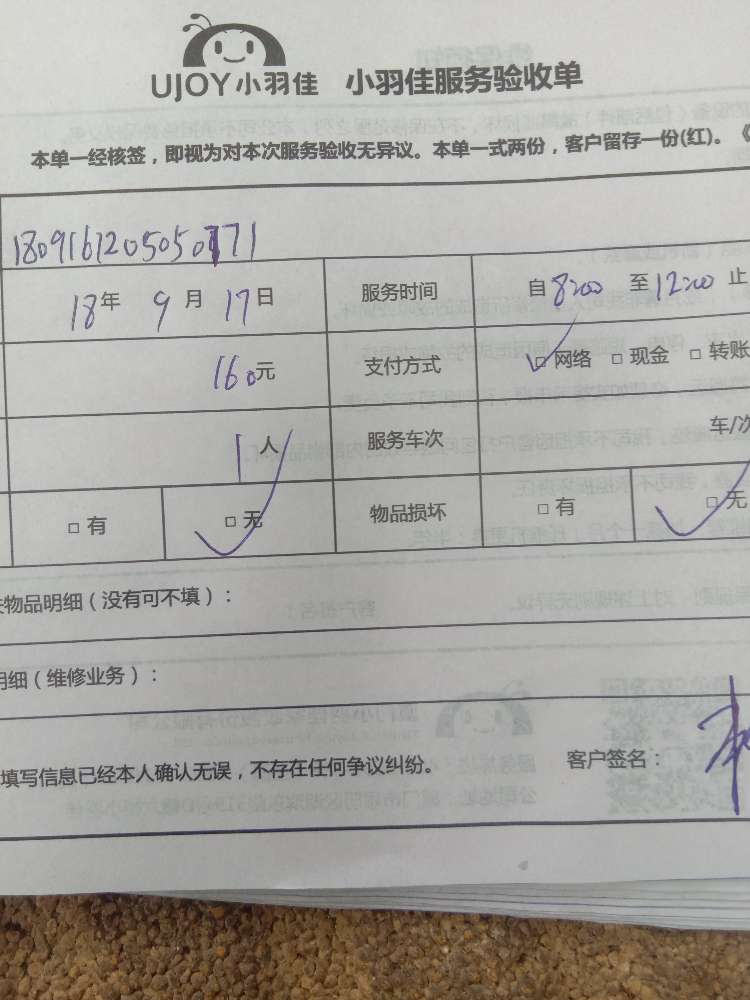 UJOY小羽佳 小羽佳服务验收单
本单一经核签，即视为对本次服务验收无异议。本单一式两份，客户留存一份(红)。《
180916120505071
18年 9月 17日 服务时间 自 8:00 至 12:00 止
160元 支付方式 □网络 □现金 □转账
1人 服务车次 车/次
□有 □无 物品损坏 □有 □无
物品明细（没有可不填）：
明细（维修业务）：
填写信息已经本人确认无误，不存在任何争议纠纷。 客户签名：